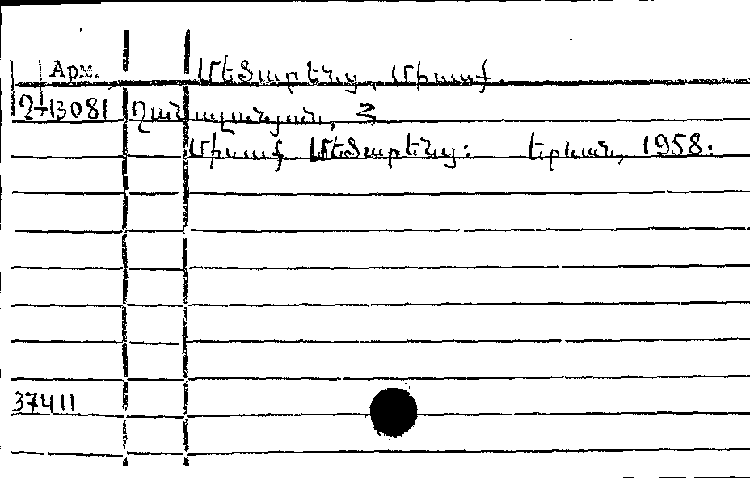 Арм. Մեծարենց, Միսաք.
Ղ-13081 Ղանալանյան, Հ
Միսաք Մեծարենց: Երևան, 1958:
37411